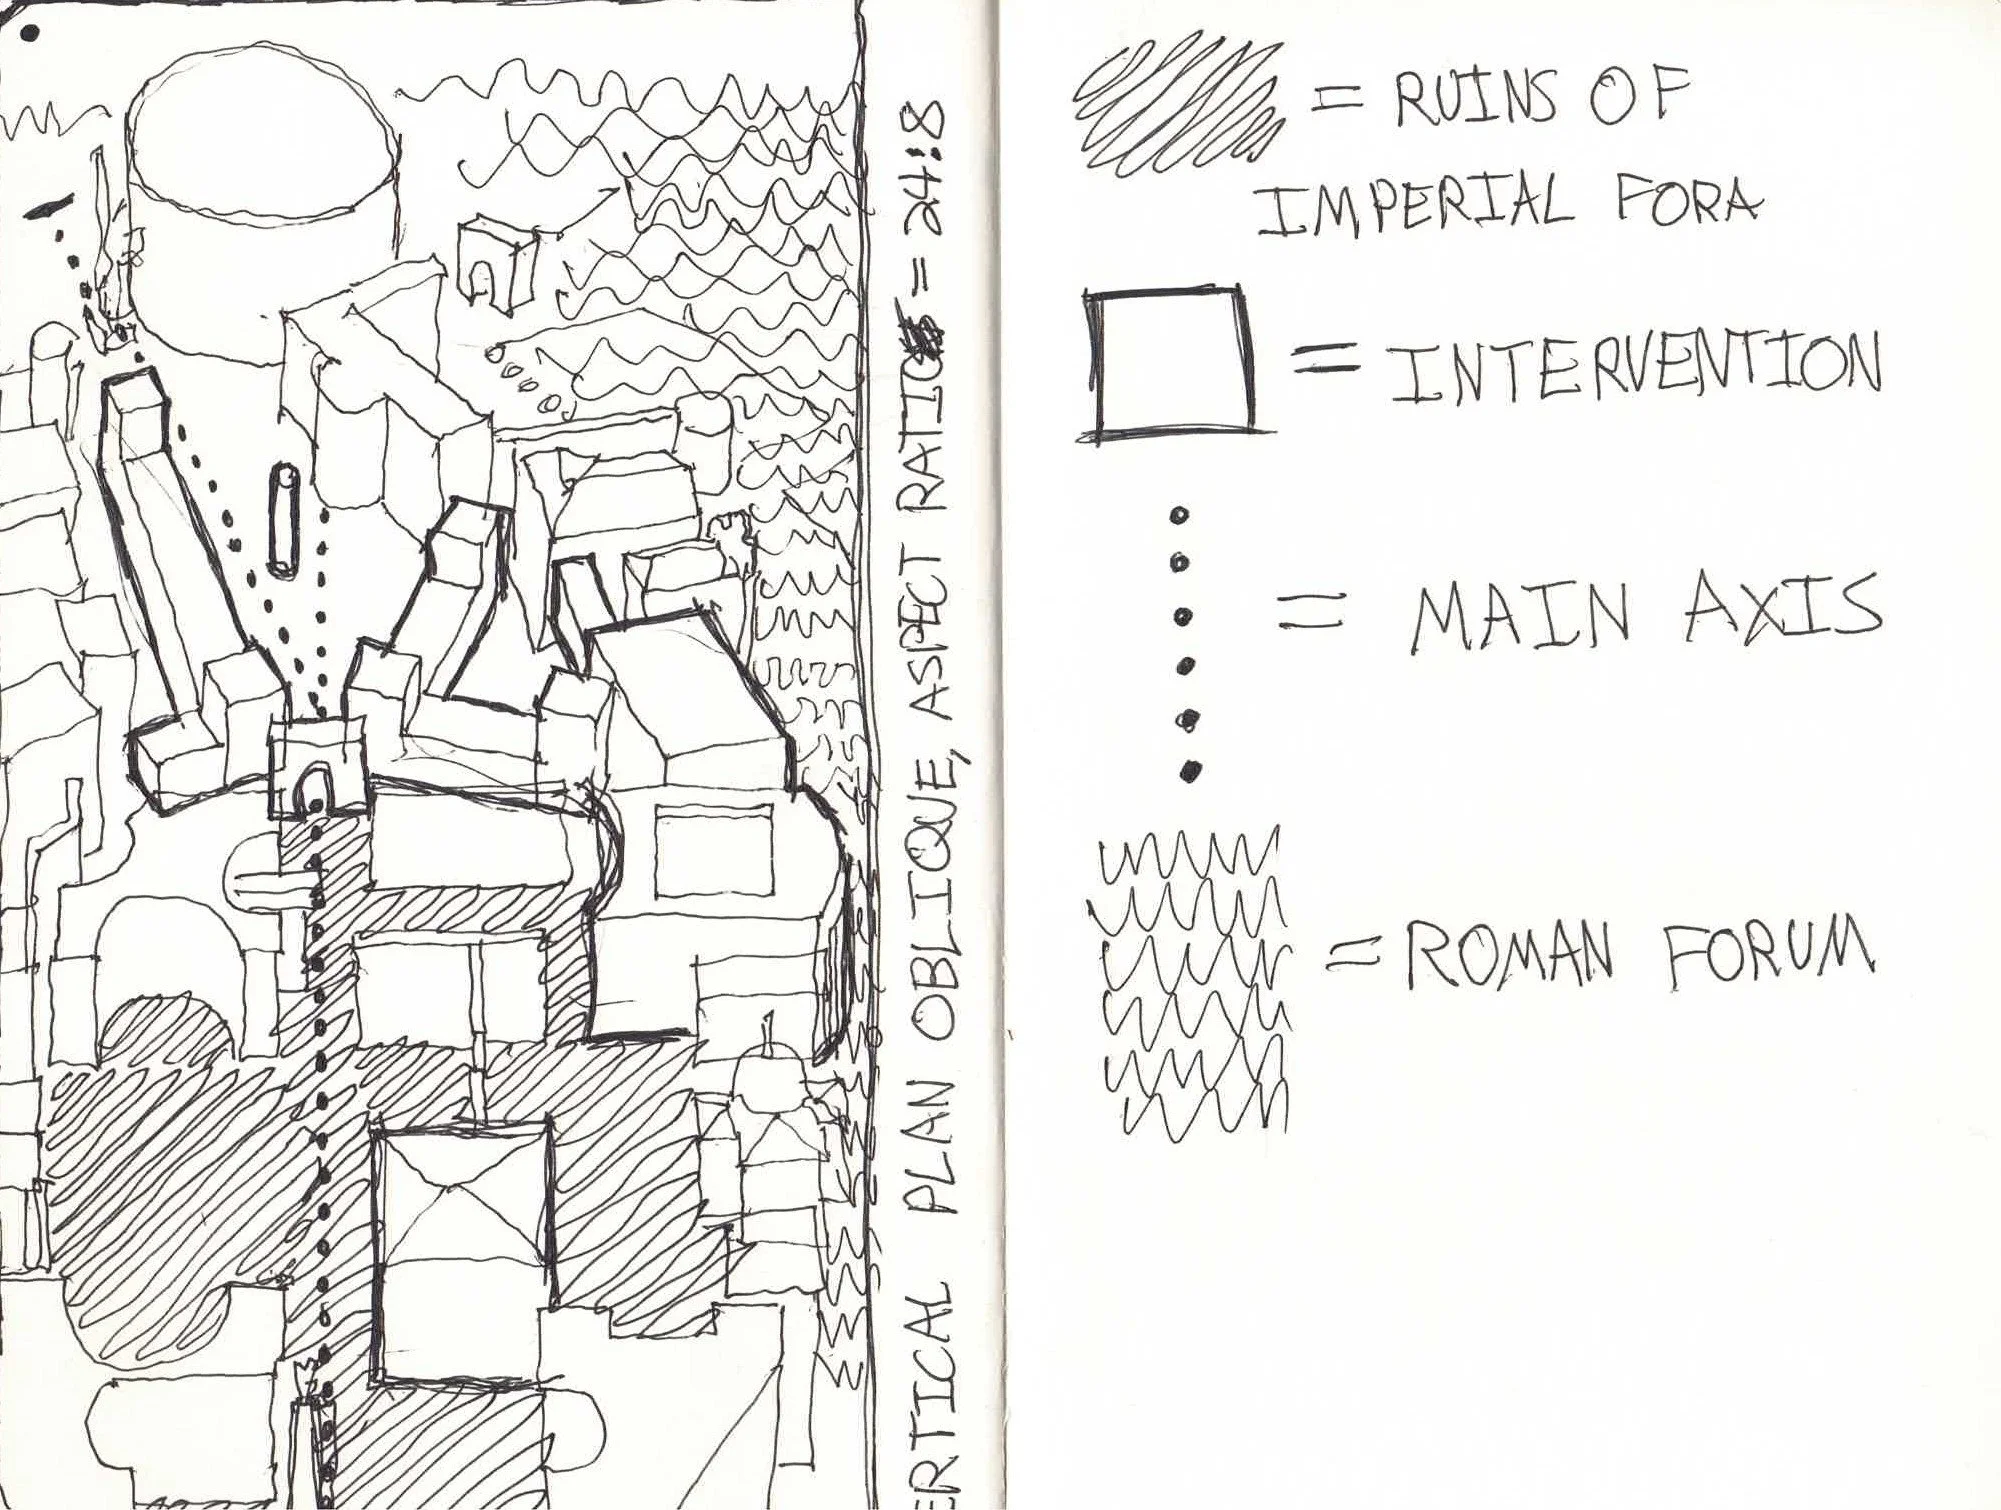 ERTICAL PLAN OBLIQUE, ASPECT RATIO = 24:8
= RUINS OF
IMPERIAL FORA
= INTERVENTION
= MAIN AXIS
= ROMAN FORUM